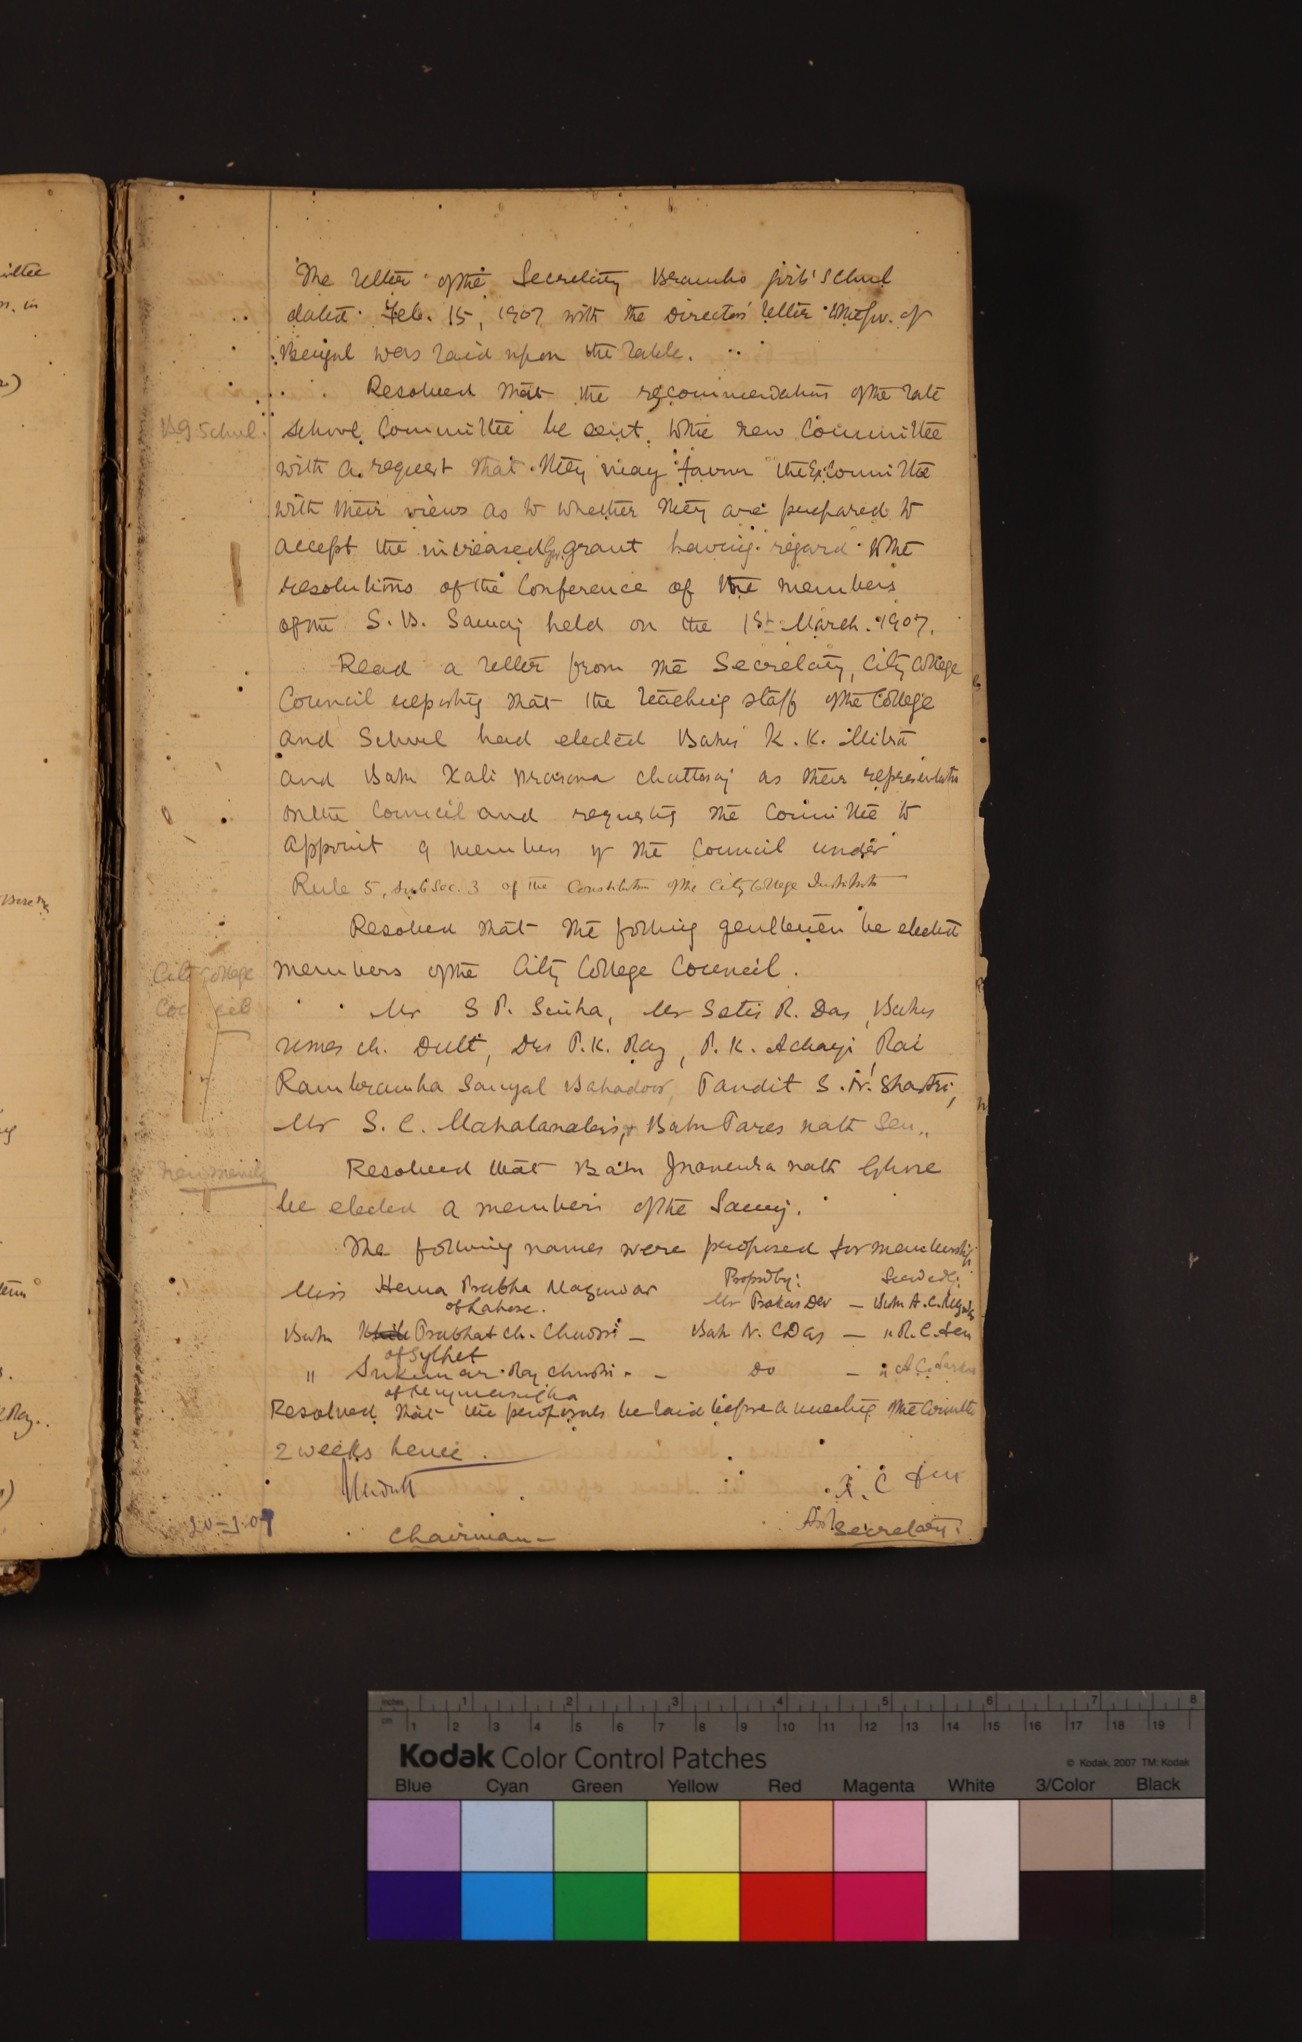 The letter of the Secretary Brahmo Girls' School
dated Feb. 15, 1907 with the Director's letter to the Gov. of
Bengal was laid upon the table.
Resolved that the recommendation of the late
B G School.
School Committee be sent to the new Committee
with a request that they may favour the Ex Committee
with their views as to whether they are prepared to
accept the increased Gov. grant having regard to the
resolutions of the Conference of the members
of the S. B. Samaj held on the 1st March 1907.
Read a letter from the Secretary, City College
Council reporting that the teaching staff of the College
and School had elected Babu K. K. Mitra
and Babu Kali Prasana Chattoraj as their representatives
on the Council and requesting the Committee to
appoint 9 members of the Council under
Rule 5, sub Sec. 3 of the Constitution of the City College Institution
Resolved that the following gentlemen be elected
City College
Council
members of the City College Council.
Mr S P. Sinha, Mr Satis R. Das, Babus
Umes Ch. Dutt, Drs P. K. Ray, P. K. Acharji, Rai
Rambramha Sanyal Bahadoor, Pandit S. N. Shastri,
Mr S. C. Mahalanabis, & Babu Pares nath Sen
New members
Resolved that Babu Jnanendra nath Ghose
be elected a members of the Samaj.
The following names were proposed for membership
Proposed by: Seconded by:
Miss Hema Prabha Mazumdar Mr Prakas Dev — Babu A. C. Mazumdar
of Lahore.
Babu Prabhat Ch. Chudri — Bab N. C Das — " R. C. Sen
of Sylhet
" Sukumar Ray Chudri - — Do — " A C. Sarkar
of Mymensingha
Resolved that the proposals be laid before a meeting of the Committee
2 weeks hence.
U C Dutt
R. C Sen
20-3-07
Chairman
Asst Secretary.
inches 1 2 3 4 5 6 7 8
cm 1 2 3 4 5 6 7 8 9 10 11 12 13 14 15 16 17 18 19
Kodak Color Control Patches © Kodak, 2007 TM: Kodak
Blue Cyan Green Yellow Red Magenta White 3/Color Black